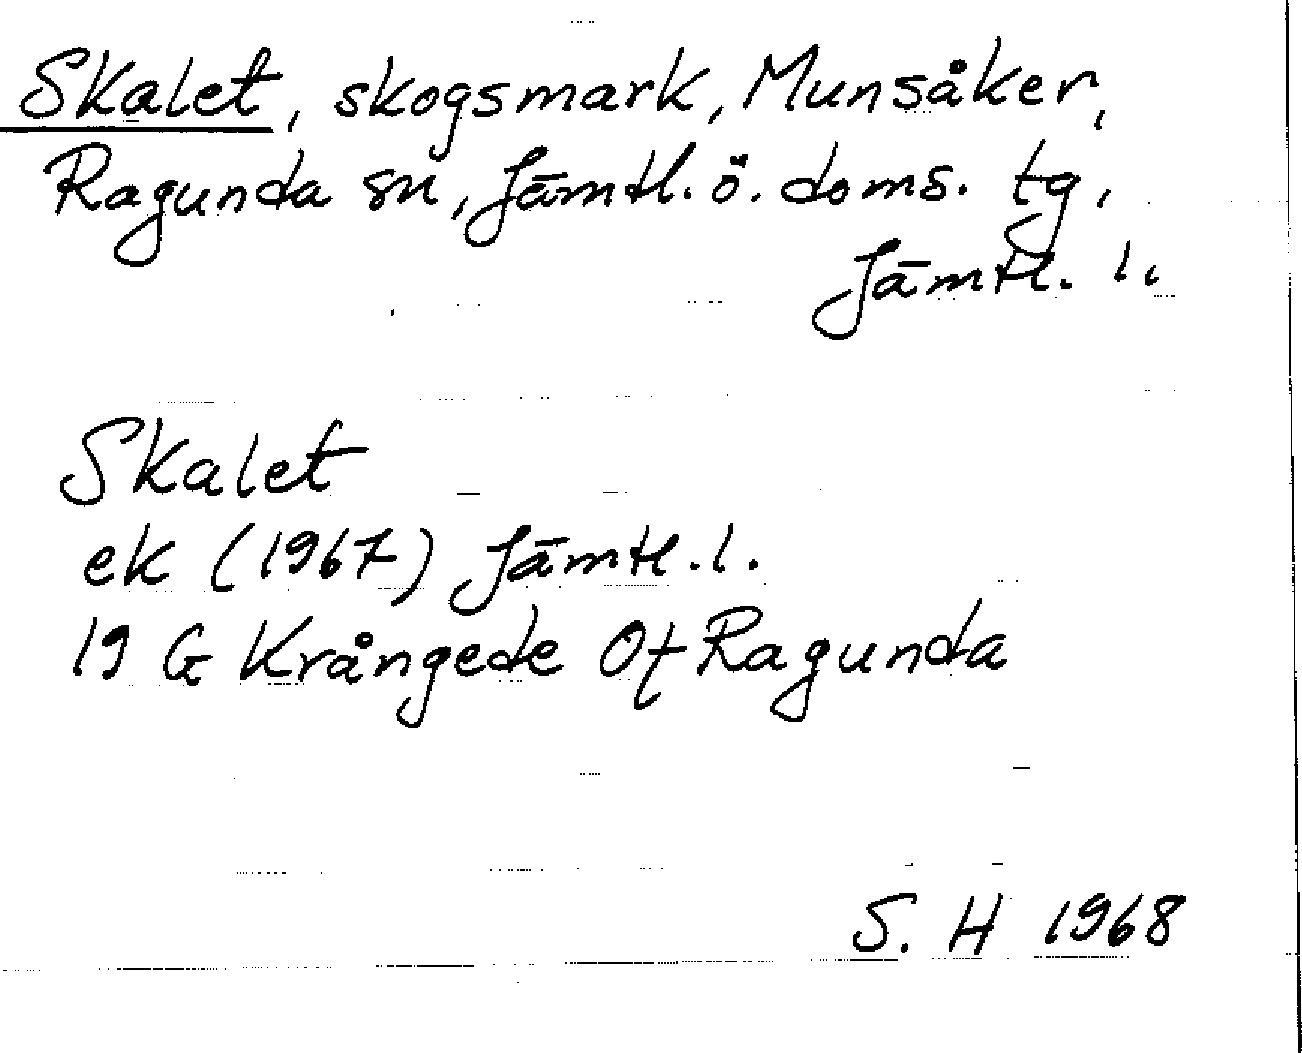 Skalet, skogsmark, Munsåker,
Ragunda sn, Jämtl. ö. doms. tg,
Jämtl. l.
Skalet
ek (1967) Jämtl. l.
19 G Krångede Of Ragunda
S. H 1968